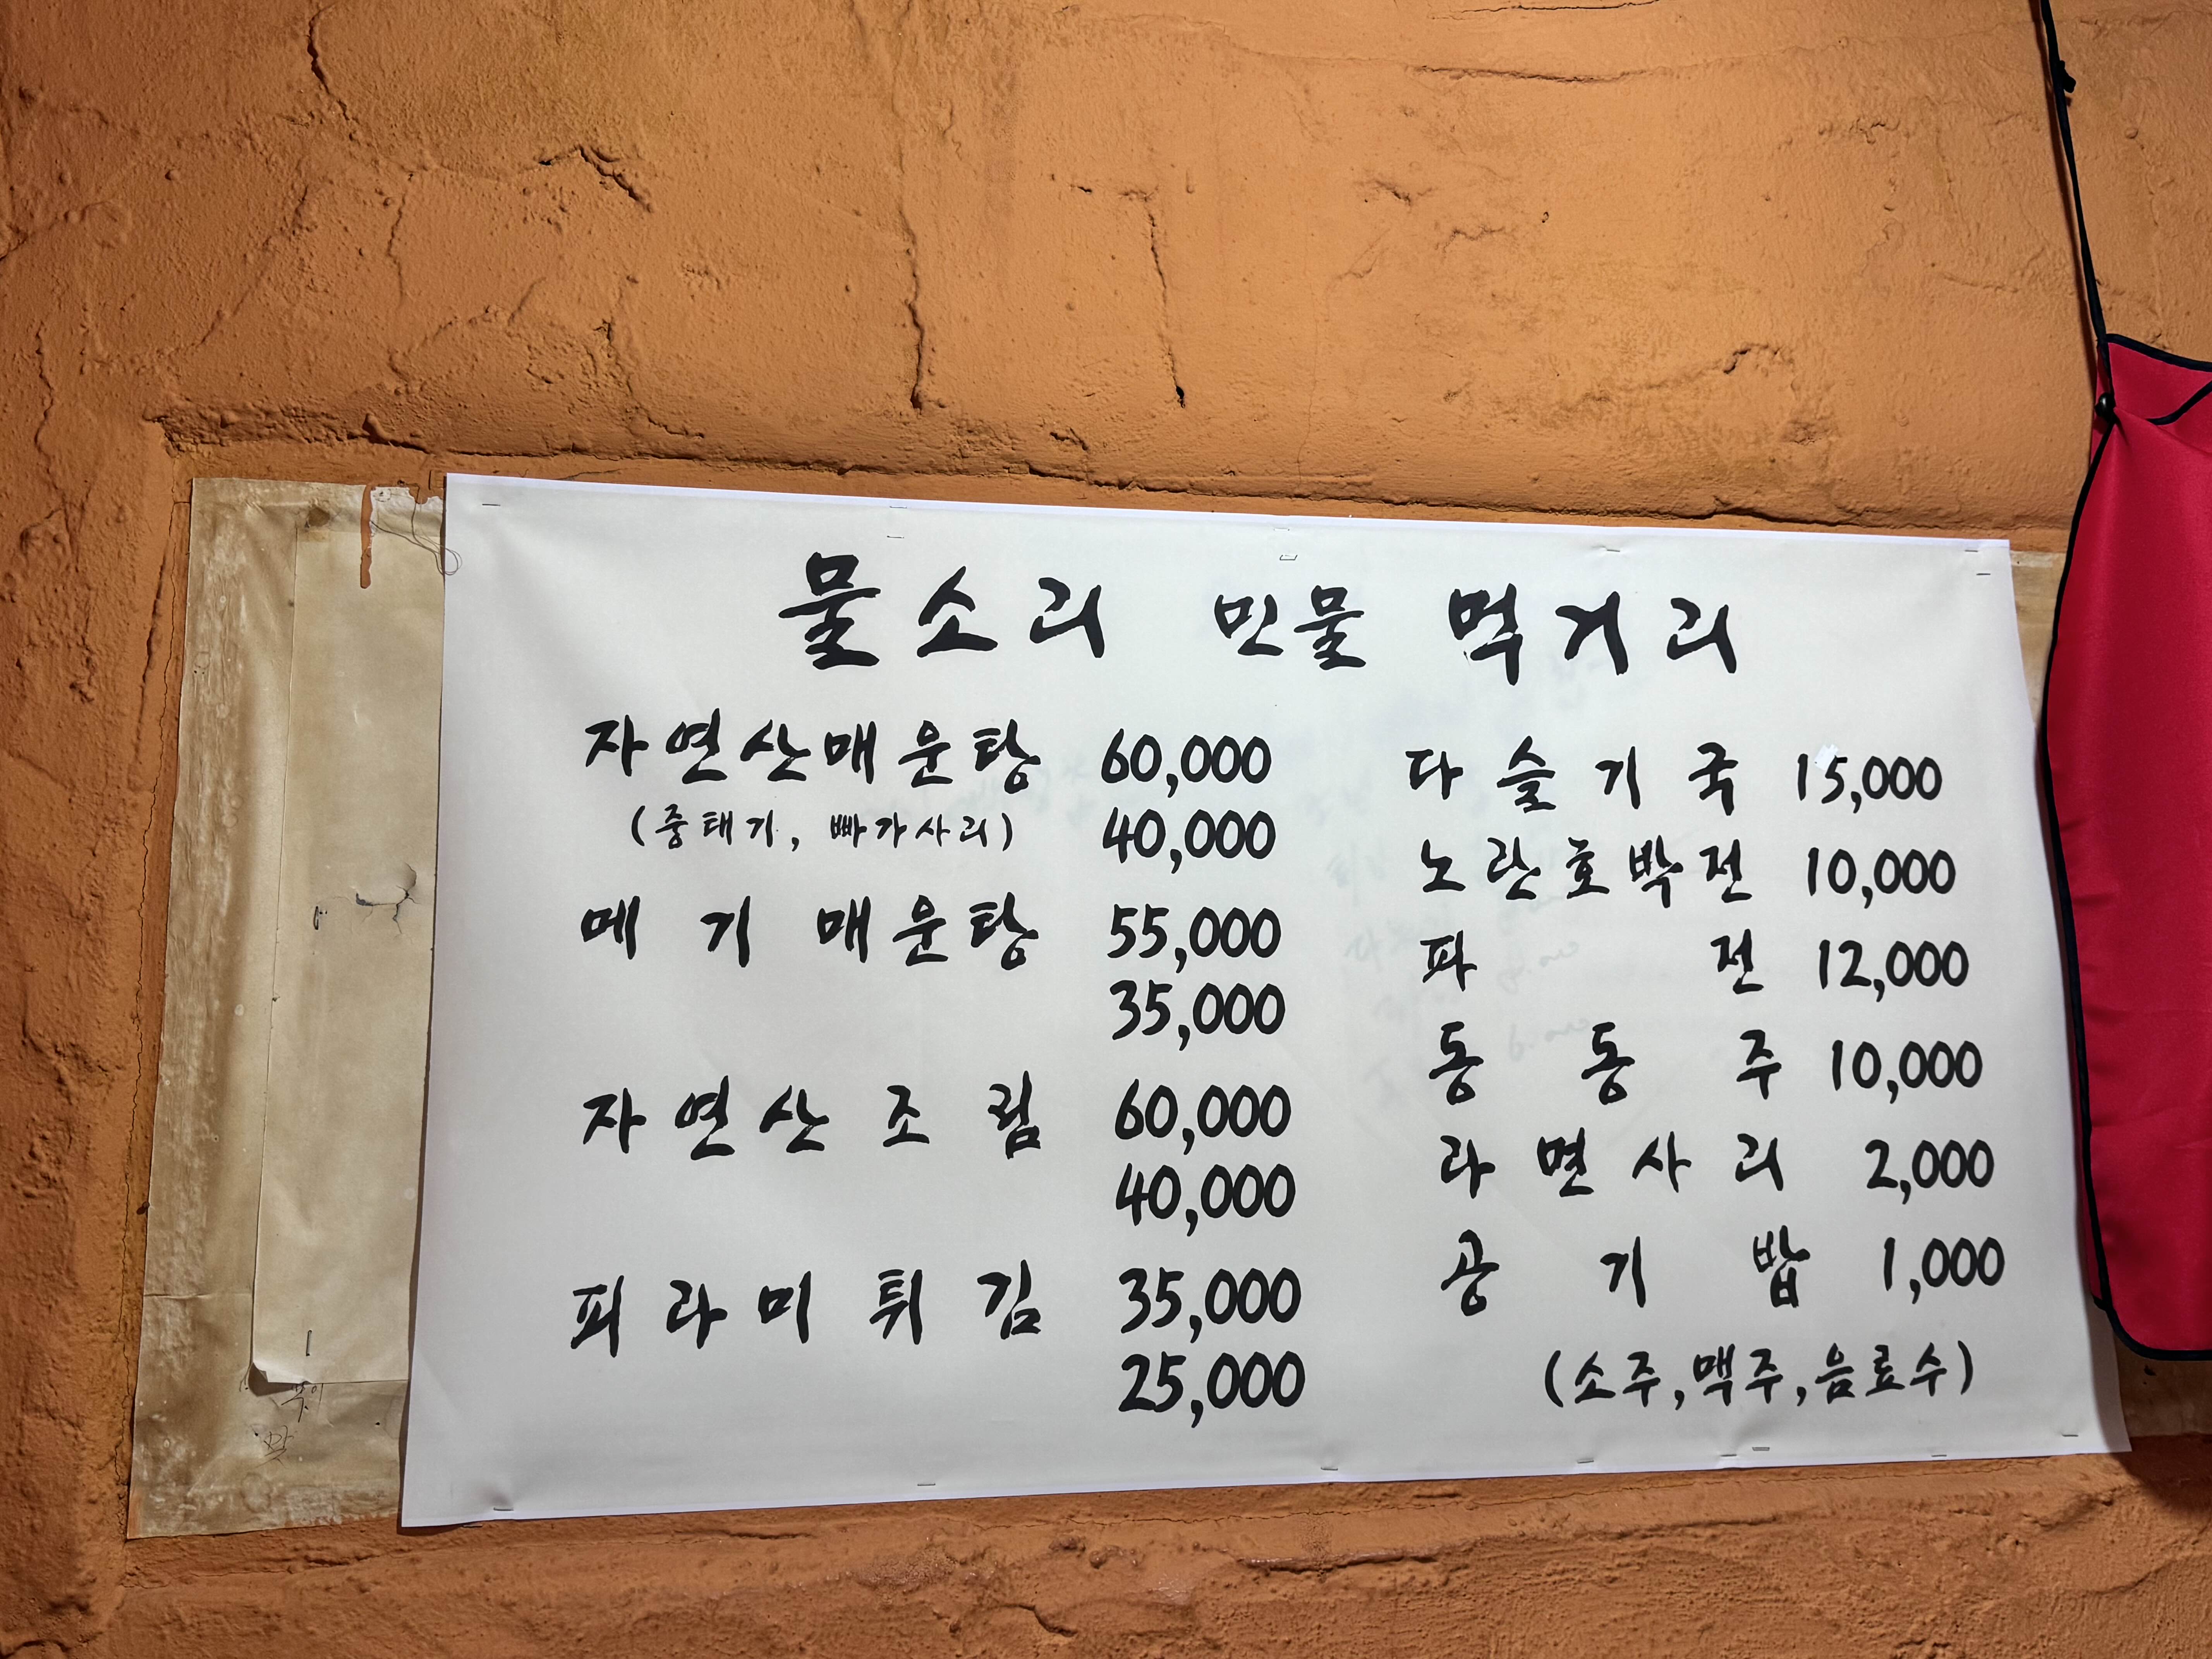 물소리 민물 먹거리
자연산매운탕 60,000
(중태기, 빠가사리) 40,000
메기 매운탕 55,000
35,000
자연산조림 60,000
40,000
피라미튀김 35,000
25,000
다슬기국 15,000
노란호박전 10,000
파전 12,000
동동주 10,000
라면사리 2,000
공기밥 1,000
(소주,맥주,음료수)